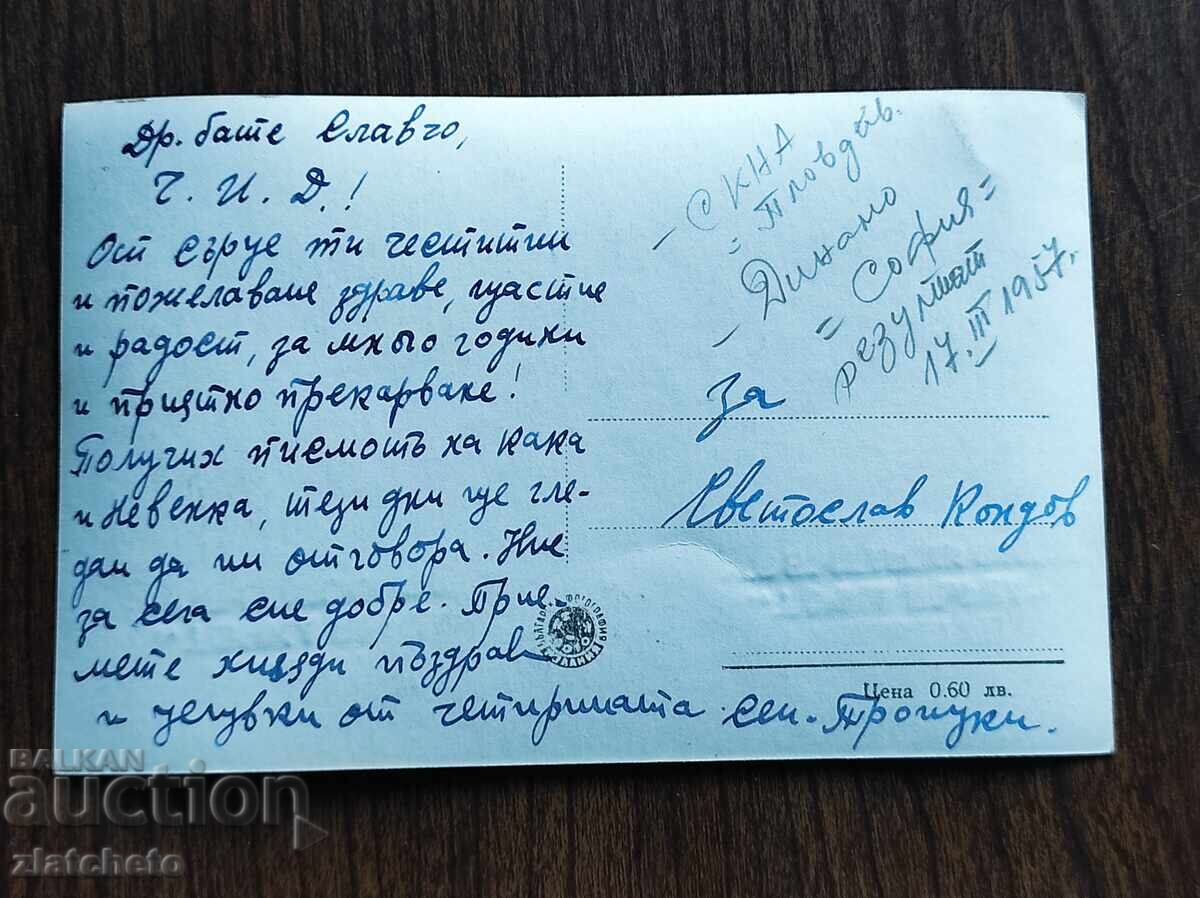 Др. бате Славчо,
Ч. И. Д.!
От сърце ти честитим
и пожелаваме здраве, щастие
и радост, за много години
и приятно прекарване!
Получих писмотъ на кака
и Невенка, тези дни ще гле-
дам да им отговоря. Ние
за сега сме добре. Прие-
мете хиляди поздрави
и целувки от четиримата сем. Трончуки.
– СКНА
= Пловдив.
– Динамо
= София =
резултат
17. III 1957.
За
Светослав Кондов
БЪЛГАРСКА ФОТОГРАФИЯ
Цена 0.60 лв.
BALKAN
auction
zlatcheto